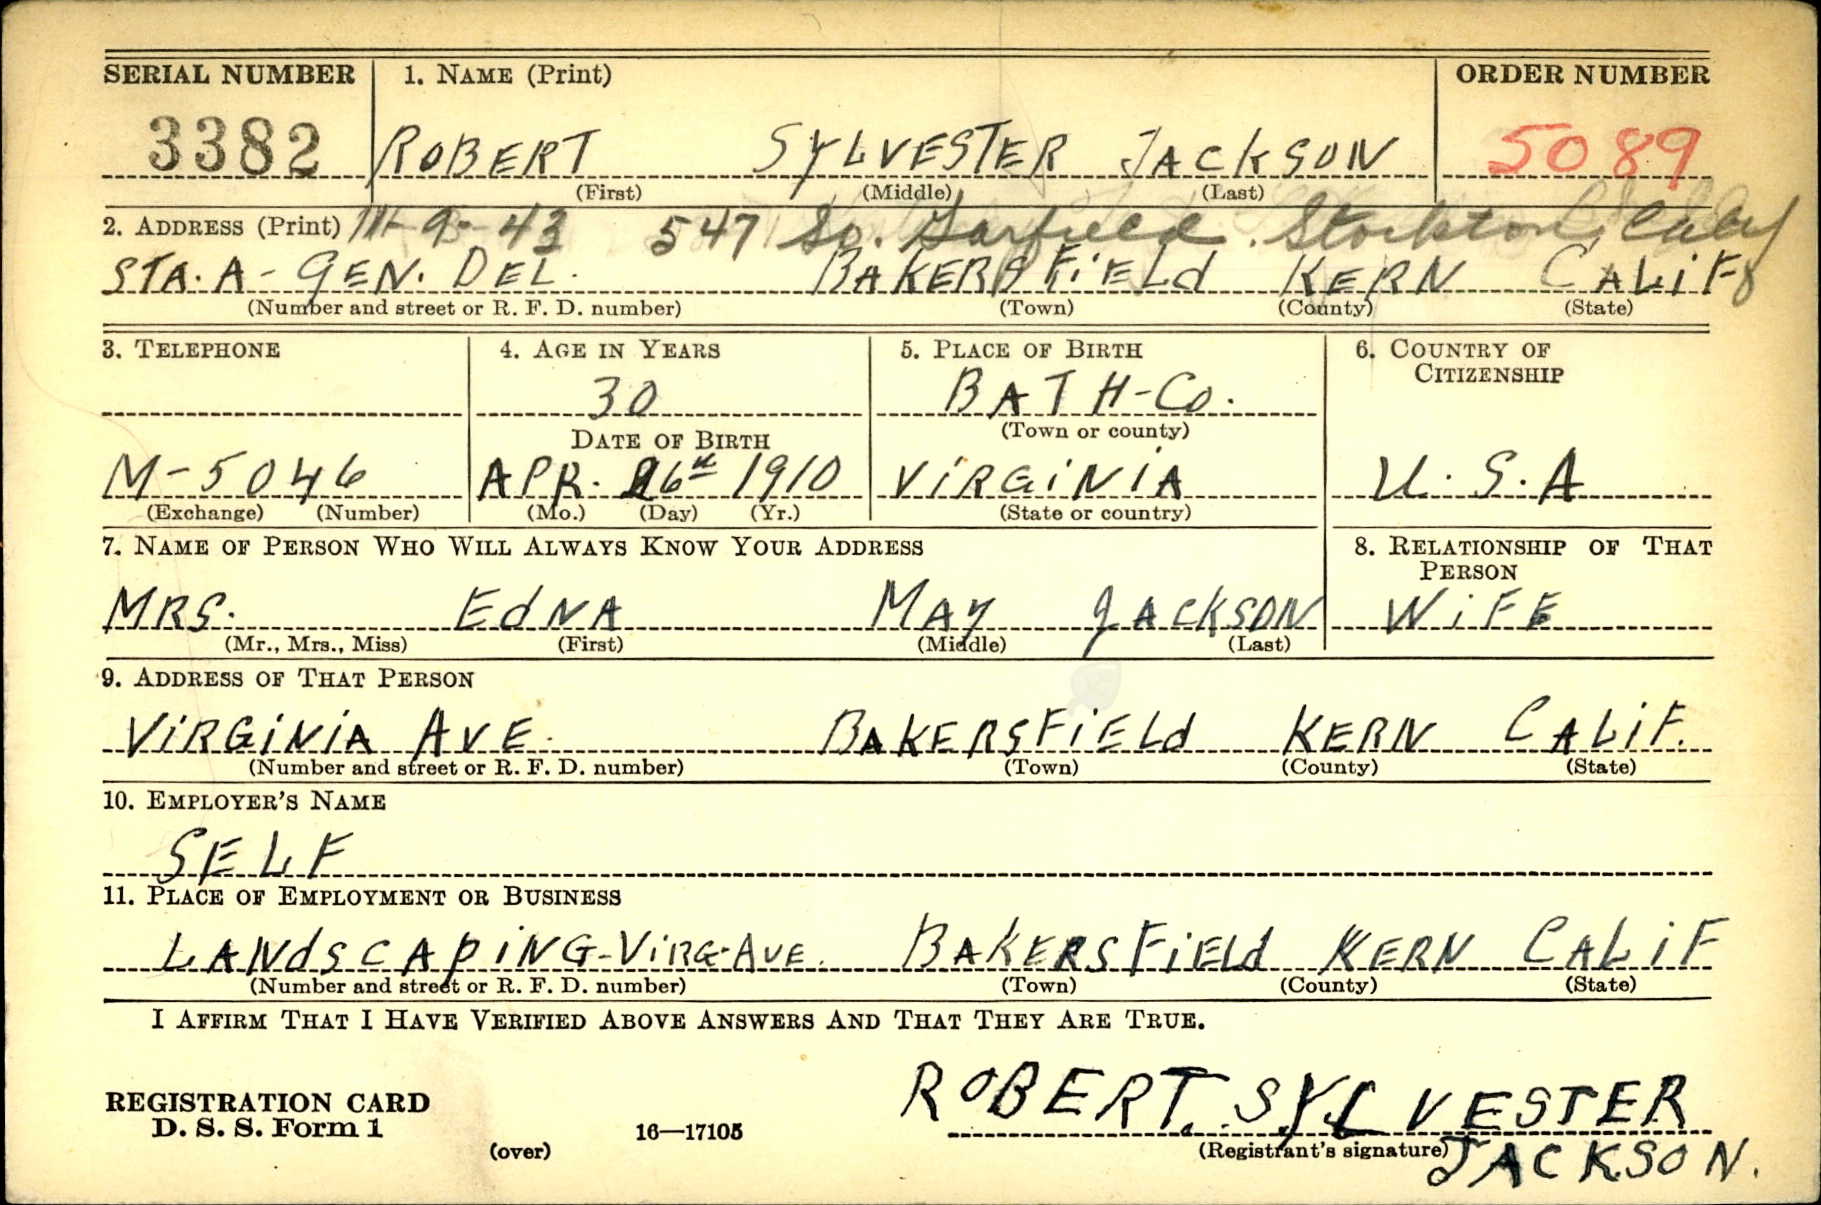 SERIAL NUMBER 1. NAME (Print) ORDER NUMBER
3382 ROBERT SYLVESTER JACKSON 5089
(First) (Middle) (Last)
2. ADDRESS (Print) 11-9-43 547 So. Garfield. Stockton, Calif
STA. A - GEN. DEL. BAKERSFiELd KERN CALiF
(Number and street or R. F. D. number) (Town) (County) (State)
3. TELEPHONE 4. AGE IN YEARS 5. PLACE OF BIRTH 6. COUNTRY OF CITIZENSHIP
30 BATH-Co.
DATE OF BIRTH (Town or county)
M-5046 APR. 1910 ViRGiNiA U.S.A
(Exchange) (Number) (Mo.) (Day) (Yr.) (State or country)
7. NAME OF PERSON WHO WILL ALWAYS KNOW YOUR ADDRESS 8. RELATIONSHIP OF THAT PERSON
MRS. EdNA MAy JACKSON WiFE
(Mr., Mrs., Miss) (First) (Middle) (Last)
9. ADDRESS OF THAT PERSON
ViRGiNiA AVE. BAKERSFiELd KERN CALiF.
(Number and street or R. F. D. number) (Town) (County) (State)
10. EMPLOYER'S NAME
SELF
11. PLACE OF EMPLOYMENT OR BUSINESS
LANdSCAPiNG-ViRG-AVE. BAKERSFiELd KERN CALiF
(Number and street or R. F. D. number) (Town) (County) (State)
I AFFIRM THAT I HAVE VERIFIED ABOVE ANSWERS AND THAT THEY ARE TRUE.
ROBERT. SYLVESTER
REGISTRATION CARD
D. S. S. Form 1 (over) 16—17105 (Registrant's signature) JACKSON.